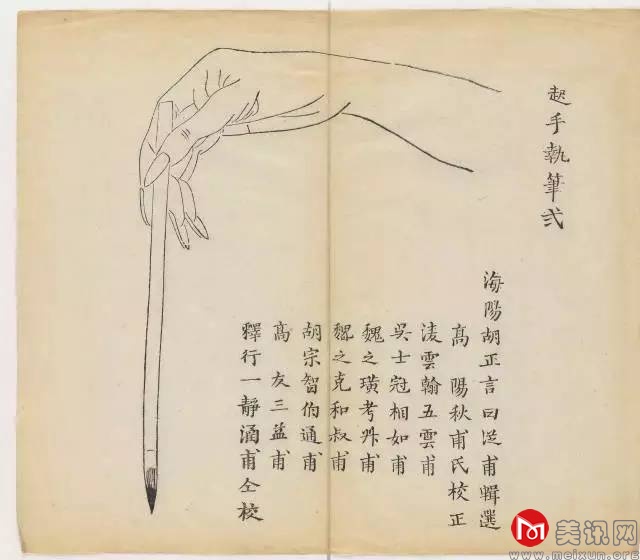 起手執筆弍
海陽胡正言曰從甫輯選
高陽秋甫氏校正
淩雲翰五雲甫
吳士冠相如甫
魏之璜考叔甫
魏之克和叔甫
胡宗智伯通甫
高友三益甫
釋行一靜涵甫仝校
美讯网
www.meixun.org